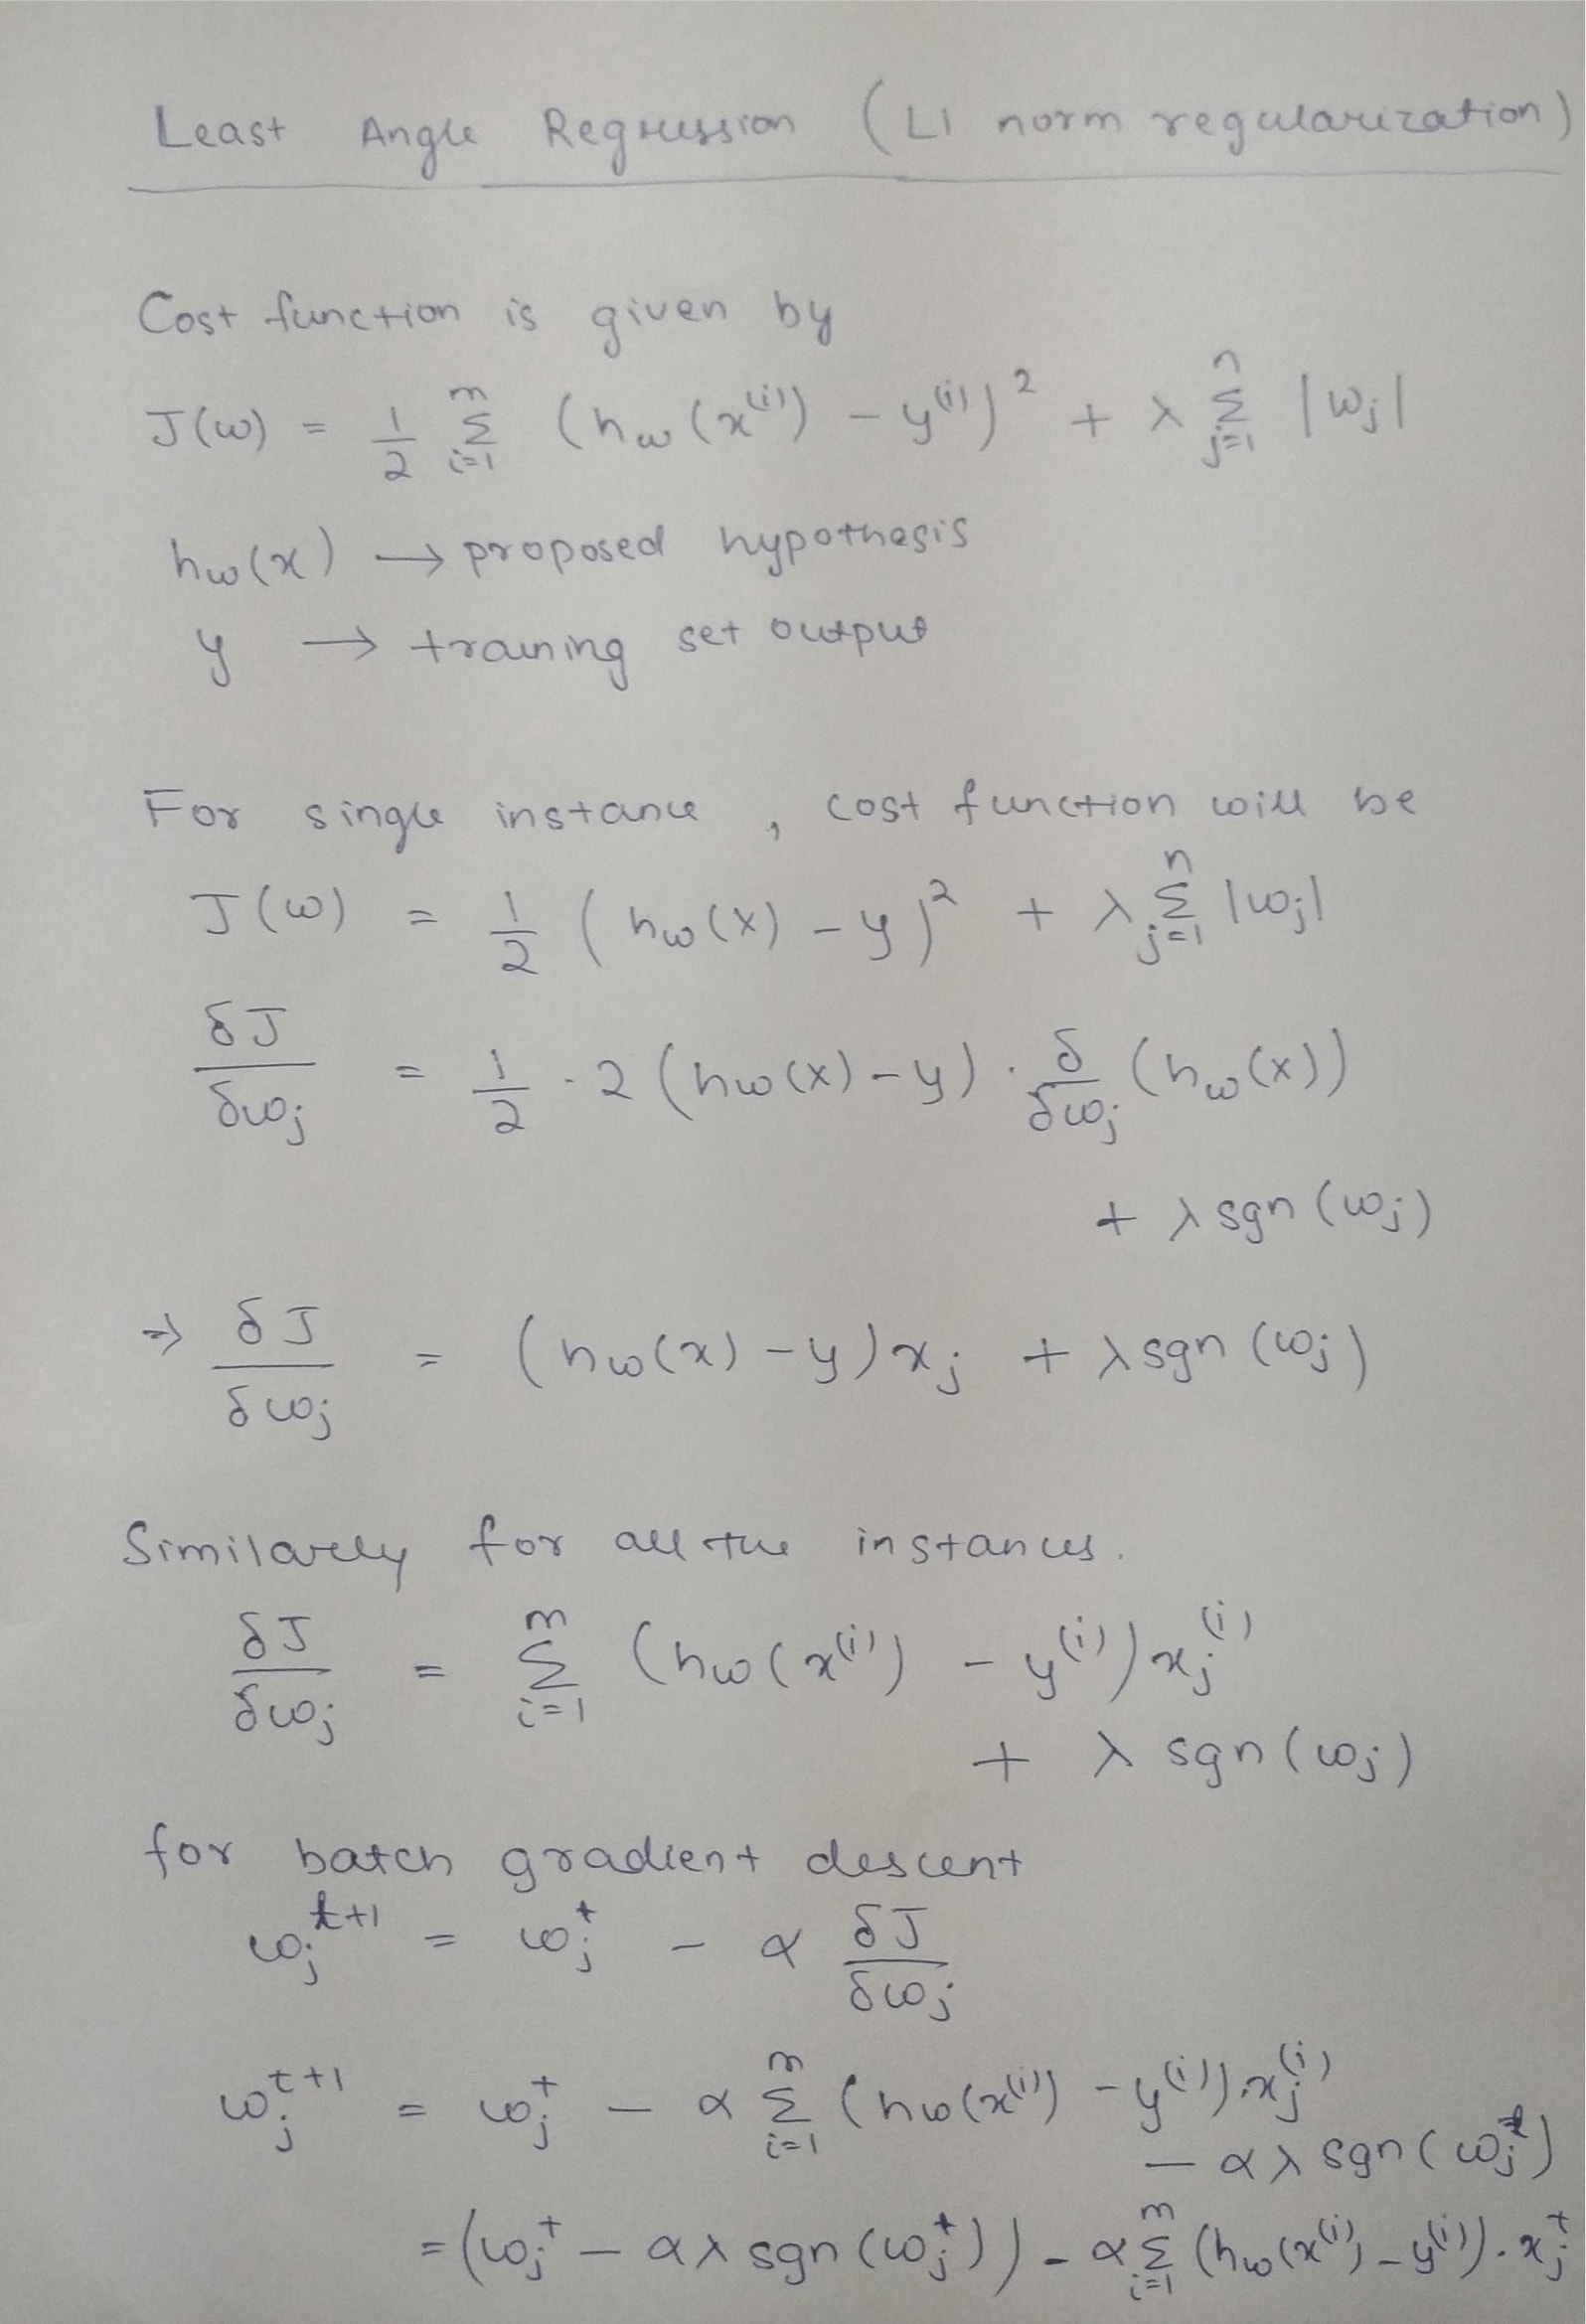 Least Angle Regression (L1 norm regularization)
Cost function is given by
J(ω) = 1/2 Σ_{i=1}^{m} (h_ω(x^{(i)}) - y^{(i)})^2 + λ Σ_{j=1}^{n} |ω_j|
h_ω(x) → proposed hypothesis
y → training set output
For single instance , cost function will be
J(ω) = 1/2 (h_ω(x) - y)^2 + λ Σ_{j=1}^{n} |ω_j|
δJ/δω_j = 1/2 · 2 (h_ω(x) - y) · δ/δω_j (h_ω(x))
+ λ sgn (ω_j)
⇒ δJ/δω_j = (h_ω(x) - y) x_j + λ sgn (ω_j)
Similarly for all the instances.
δJ/δω_j = Σ_{i=1}^{m} (h_ω(x^{(i)}) - y^{(i)}) x_j^{(i)}
+ λ sgn (ω_j)
for batch gradient descent
ω_j^{t+1} = ω_j^t - α δJ/δω_j
ω_j^{t+1} = ω_j^t - α Σ_{i=1}^{m} (h_ω(x^{(i)}) - y^{(i)}).x_j^{(i)}
- αλ sgn (ω_j^t)
= (ω_j^t - αλ sgn (ω_j^t)) - α Σ_{i=1}^{m} (h_ω(x^{(i)}) - y^{(i)}).x_j^t